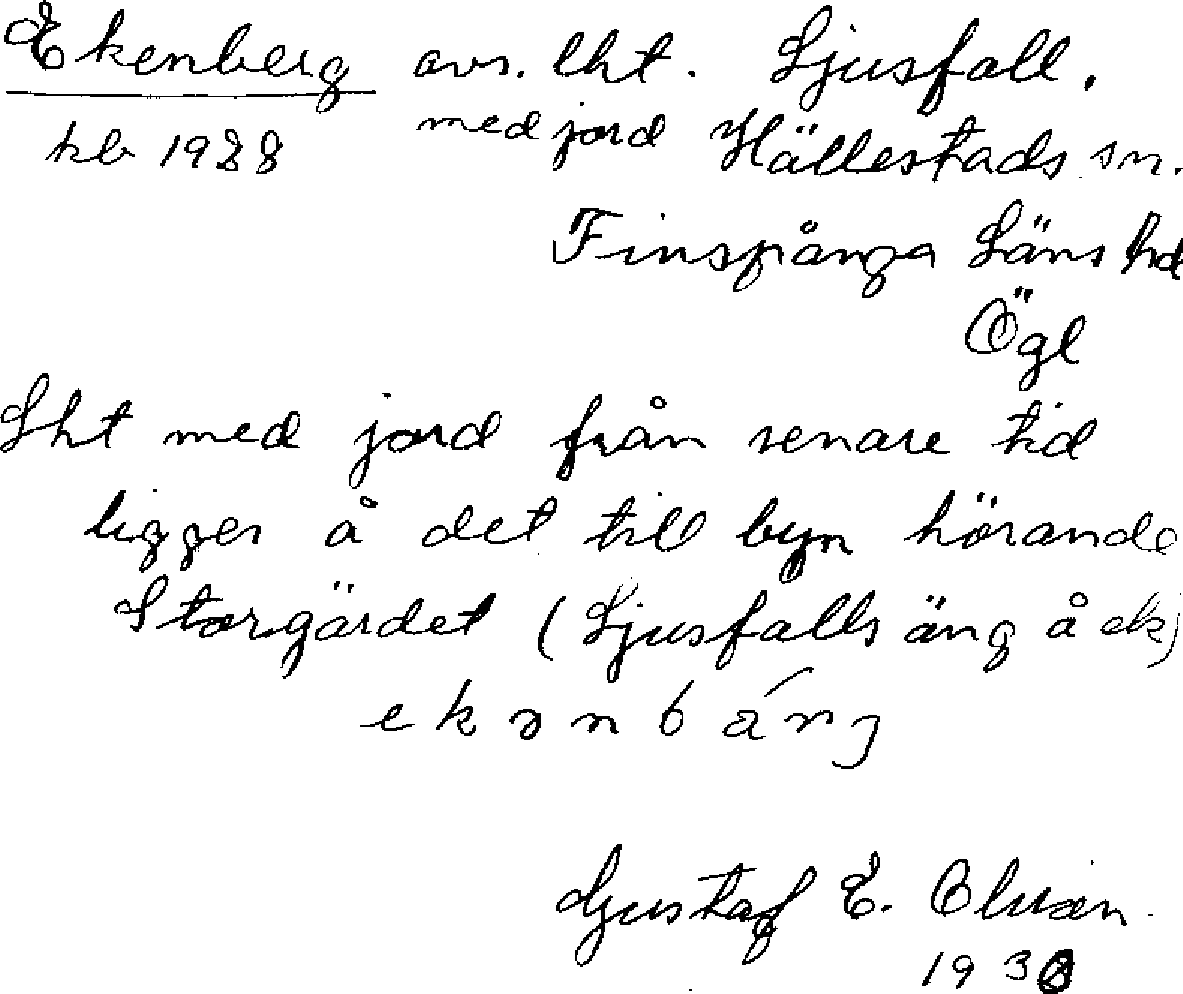 Ekenberg avs. lht. Ljusfall.
kb 1928 med jord Hällestads sn.
Finspånga Läns hd
Ögl
Lht med jord från senare tid
ligger å det till byn hörande
Storgärdet (Ljusfalls äng å ek)
ekənbárj
Gustaf E.
1938